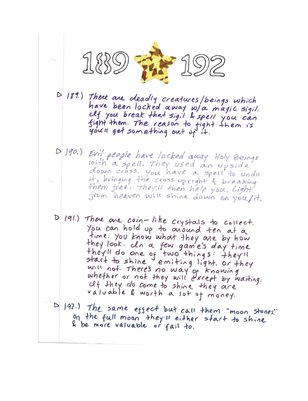 189 192
▷ 189.) There are deadly creatures/beings which
have been locked away w/a magic sigil.
If you break that sigil & spell you can
fight them. The reason to fight them is
you'll get something out of it.
▷ 190.) Evil people have locked away Holy Beings
with a spell. They used an upside
down cross. You have a spell to undo
it, bringing the cross upright & breaking
them free. They'll then help you. Light
from heaven will shine down on you/it.
▷ 191.) There are coin-like crystals to collect.
You can hold up to around ten at a
time. You know what they are by how
they look. In a few game's day time
they'll do one of two things: they'll
start to shine emitting light. Or they
will not. There's no way of knowing
whether or not they will except by waiting.
If they do come to shine they are
valuable & worth a lot of money.
▷ 192.) The same effect but call them "moon stones"
on the full moon they'll either start to shine
& be more valuable or fail to.